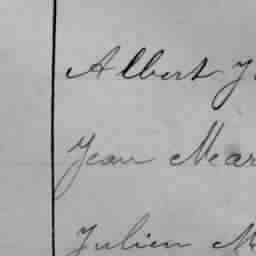 Albert J
Jean Mar
Julien M